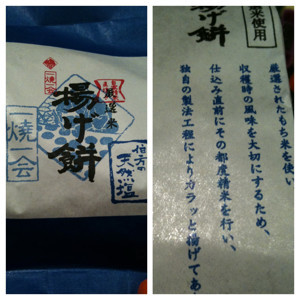 一焼一会
揚げ餅
一焼一会
伯方の
天然塩
米使用
揚げ餅
厳選されたもち米を使い
収穫時の風味を大切にするため、
仕込み直前にその都度精米を行い、
独自の製法工程によりカラッと揚げてあ